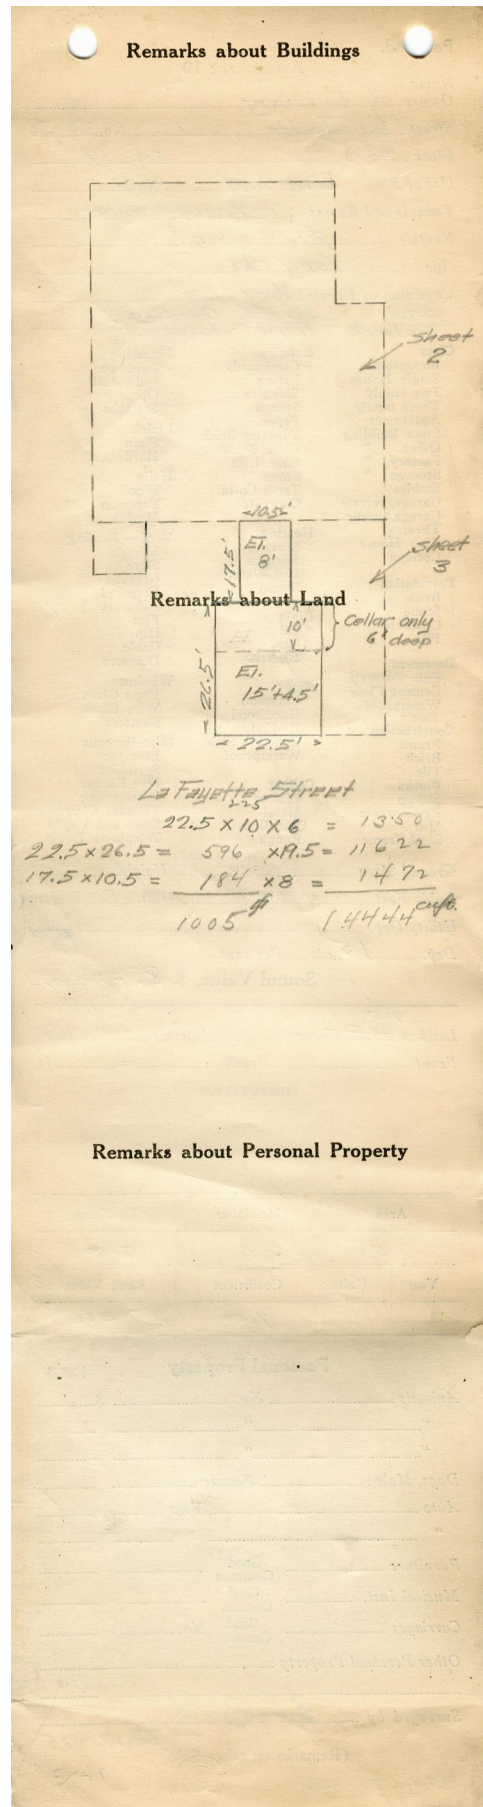 Remarks about Buildings
Sheet
2
10.5'
E1.
8'
17.5'
Sheet
3
Remarks about Land
10'
Cellar only
6' deep
E1.
26.5'
E1.
15'+4.5'
22.5'
La Fayette Street
225
22.5 X 10 X 6 = 1350
22.5 X 26.5 = 596 X 19.5 = 11622
17.5 X 10.5 = 184 X 8 = 1472
1005 14444 cuft.
Remarks about Personal Property